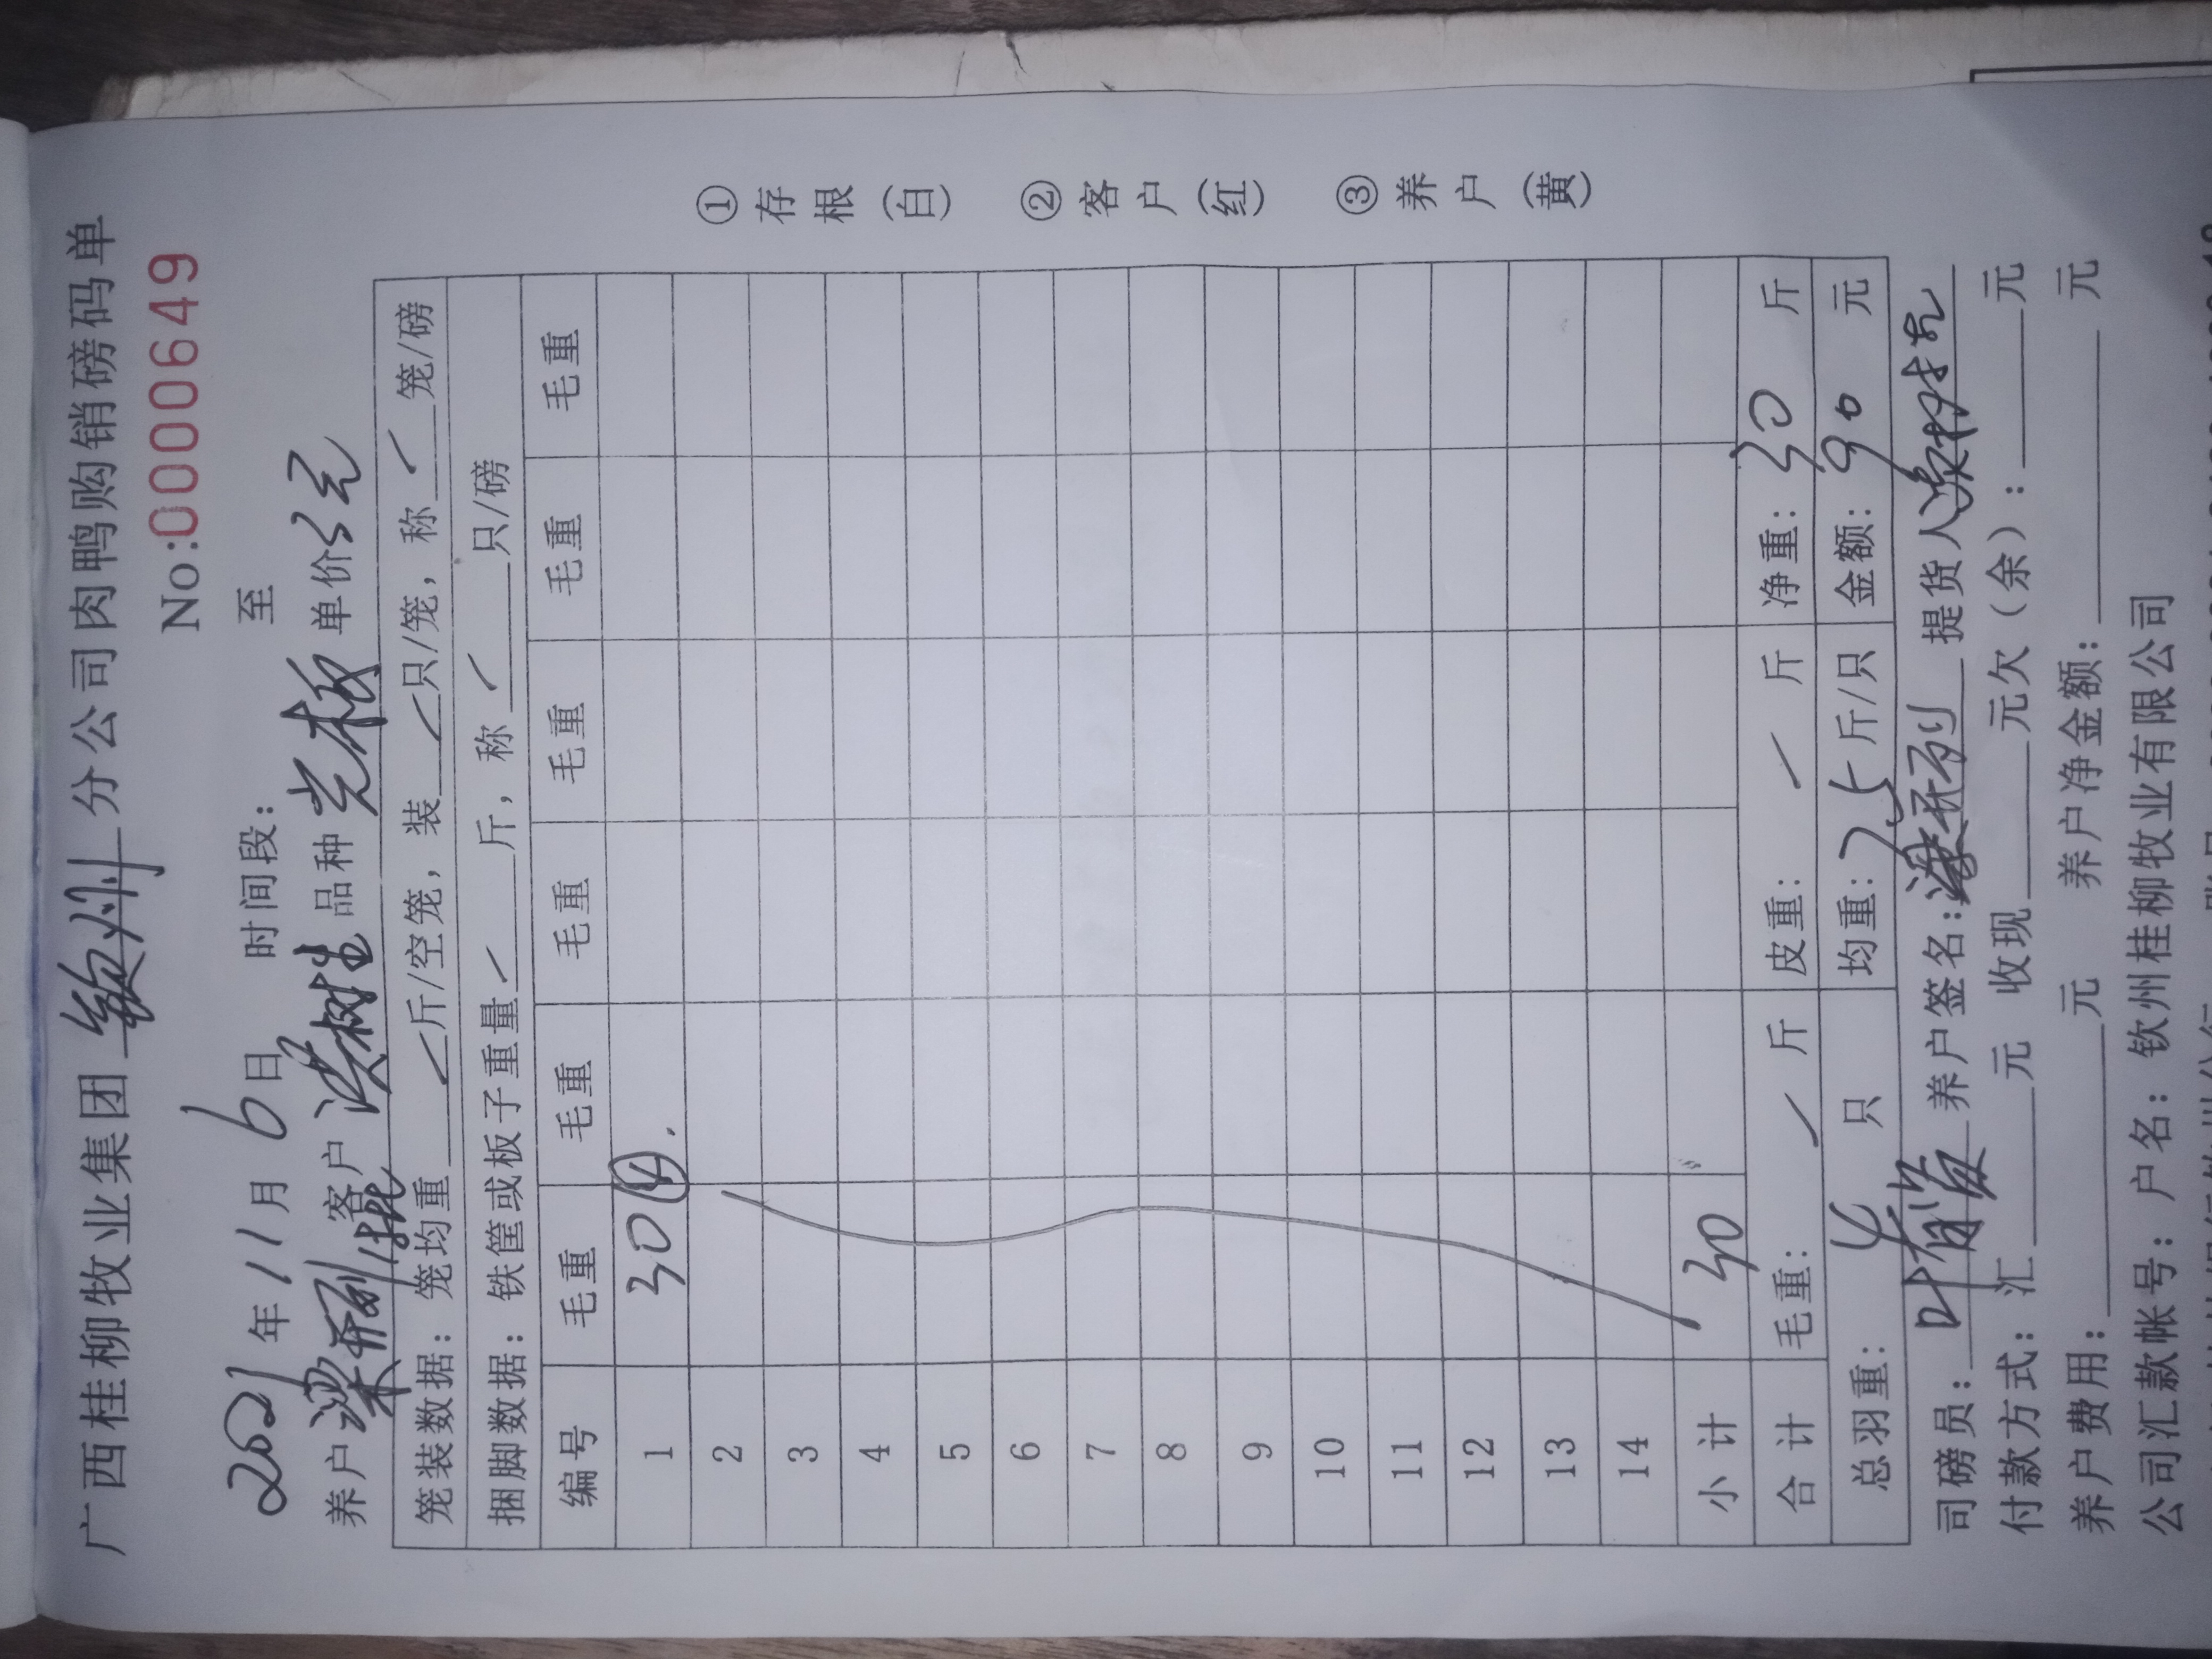 广西桂柳牧业集团 钦州 分公司肉鸭购销磅码单
No:0000649
2021年11月6日 时间段： 至
养户 客户 洪树生 品种 光板 单价3元
笼装数据：笼均重 斤/空笼，装 只/笼，称 笼/磅
捆脚数据：铁筐或板子重量 斤，称 只/磅
编号 毛重 毛重 毛重 毛重 毛重 毛重
1 30④
2
3
4
5
6
7
8
9
10
11
12
13
14
小计 30
合计 毛重： 斤 皮重： 斤 净重：30 斤
总羽重： 4 只 均重：7.5斤/只 金额：90 元
司磅员： 养户签名： 提货人
付款方式：汇 元 收现 元欠（余）： 元
养户费用： 元 养户净金额： 元
公司汇款帐号：户名：钦州桂柳牧业有限公司
①存根（白） ②客户（红） ③养户（黄）